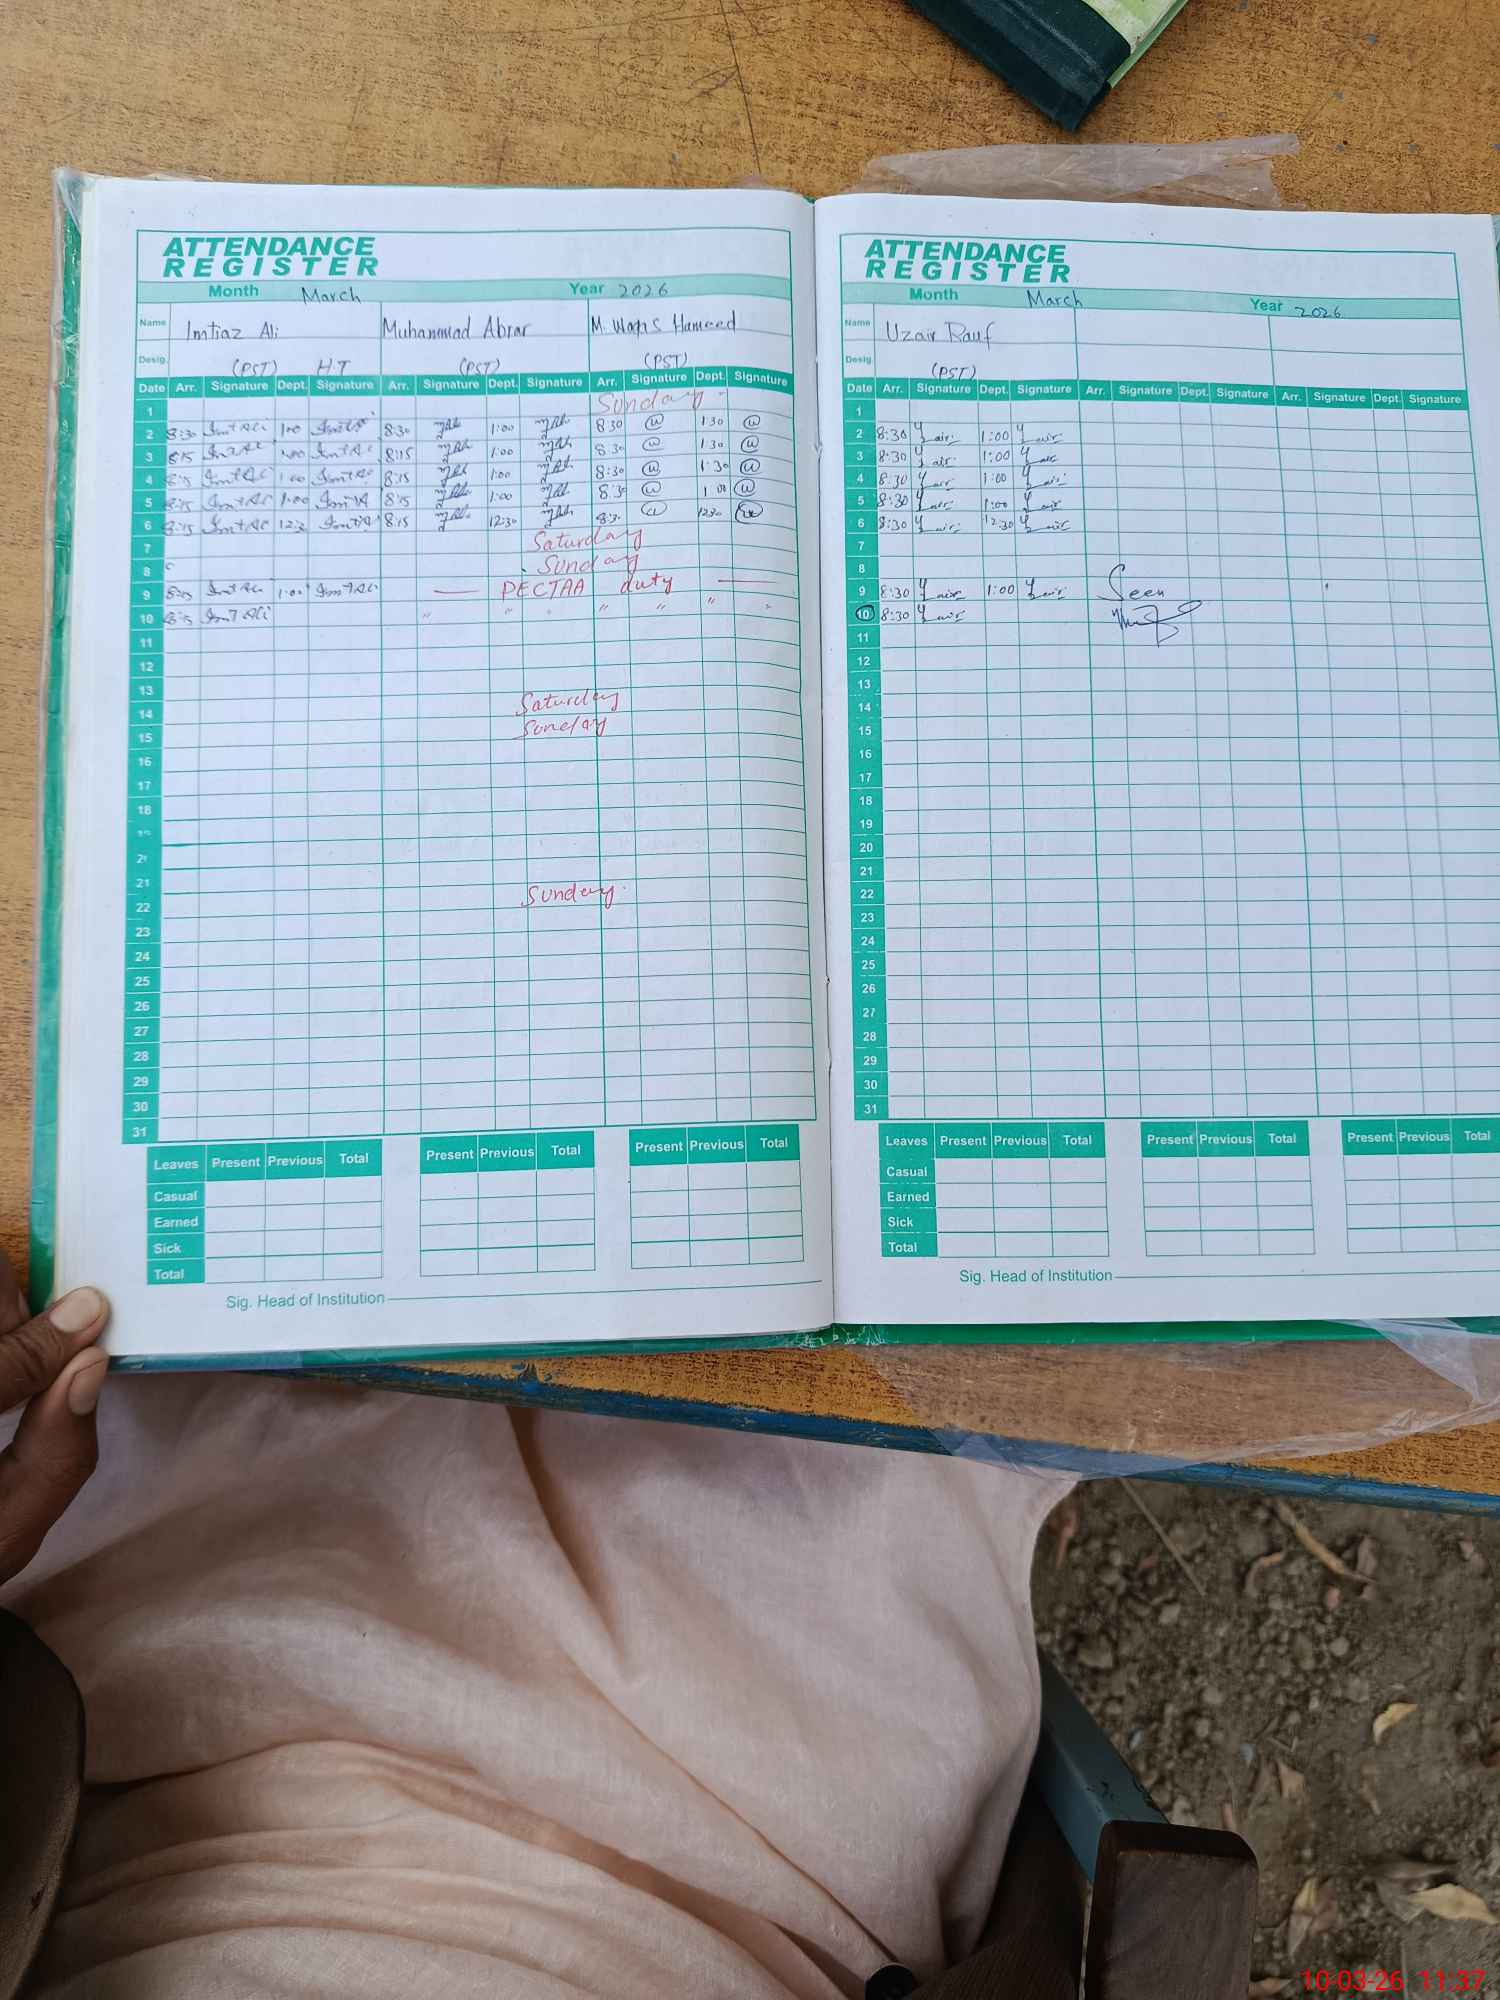 ATTENDANCE
REGISTER
Month March Year 2026
Name Imtiaz Ali Muhammad Abrar M. Waqas Hameed
Desig. (PST) H.T (PST) (PST)
Date Arr. Signature Dept. Signature Arr. Signature Dept. Signature Arr. Signature Dept. Signature
1 Sunday
2 8:30 1:00 8:30 1:00 8:30 1:30
3 8:15 1:00 8:15 1:00 8:30 1:30
4 8:15 1:00 8:15 1:00 8:30 1:30
5 8:15 1:00 8:15 1:00 8:30 1:00
6 8:15 8:15 12:30 8:30 12:30
7 Saturday
8 Sunday
9 8:15 1:00 PECTAA duty
10 8:15 " " " " " " "
11
12
13
14 Saturday
15 Sunday
16
17
18
21
22 Sunday
23
24
25
26
27
28
29
30
31
Leaves Present Previous Total Present Previous Total Present Previous Total
Casual
Earned
Sick
Total
Sig. Head of Institution
ATTENDANCE
REGISTER
Month March Year 2026
Name Uzair Rauf
Desig. (PST)
Date Arr. Signature Dept. Signature Arr. Signature Dept. Signature Arr. Signature Dept. Signature
1
2 8:30 1:00
3 8:30 1:00
4 8:30 1:00
5 8:30 1:00
6 8:30 12:30
7
8
9 8:30 1:00 Seen
10 8:30
11
12
13
14
15
16
17
18
19
20
21
22
23
24
25
26
27
28
29
30
31
Leaves Present Previous Total Present Previous Total Present Previous Total
Casual
Earned
Sick
Total
Sig. Head of Institution
10-03-26 11:37